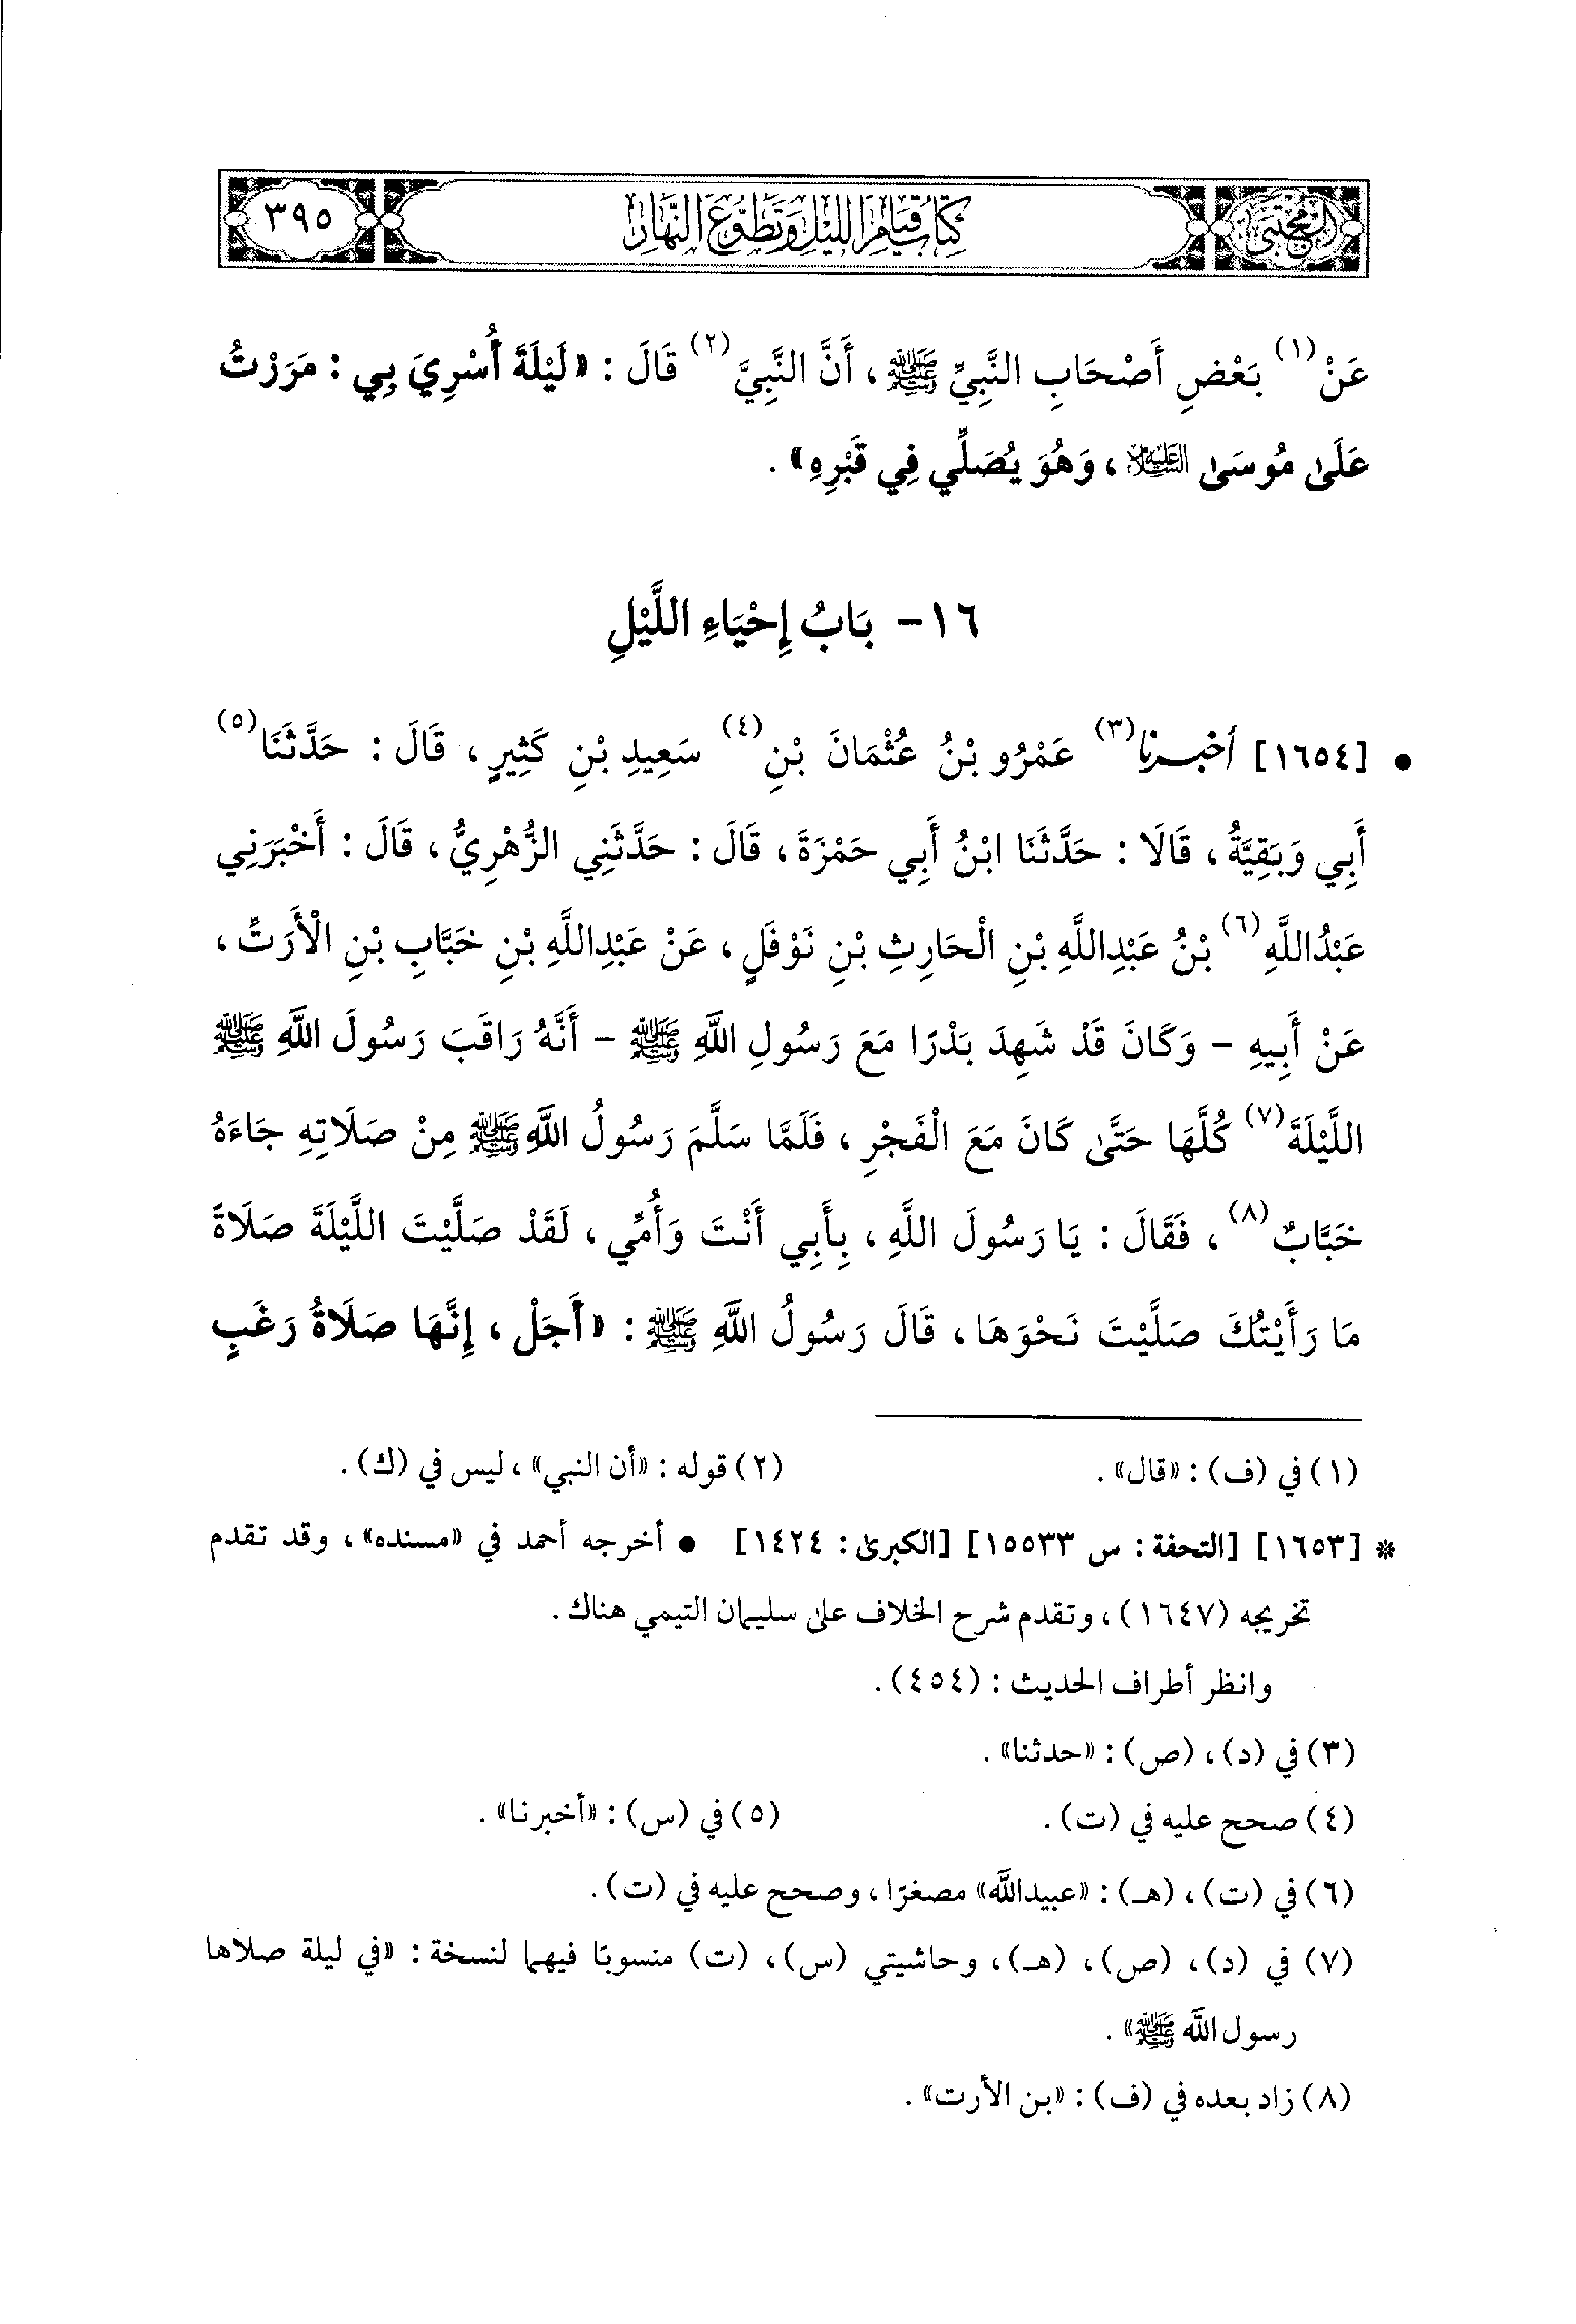 المجتبى
كِتَابُ قِيَامِ اللَّيْلِ وَتَطَوُّعِ النَّهَارِ
٣٩٥
عَنْ(١) بَعْضِ أَصْحَابِ النَّبِيِّ ﷺ ، أَنَّ النَّبِيَّ(٢) قَالَ : « لَيْلَةَ أُسْرِيَ بِي : مَرَرْتُ
عَلَىٰ مُوسَىٰ الْعَلَيْهِ السَّلَامُ ، وَهُوَ يُصَلِّي فِي قَبْرِهِ» .
١٦ - بَابُ إِحْيَاءِ اللَّيْلِ
• [١٦٥٤] أخبرنا(٣) عَمْرُو بْنُ عُثْمَانَ بْنِ(٤) سَعِيدِ بْنِ كَثِيرٍ ، قَالَ : حَدَّثَنَا(٥)
أَبِي وَبَقِيَّةُ ، قَالَا : حَدَّثَنَا ابْنُ أَبِي حَمْزَةَ ، قَالَ : حَدَّثَنِي الزُّهْرِيُّ ، قَالَ : أَخْبَرَنِي
عَبْدُاللَّهِ(٦) بْنُ عَبْدِاللَّهِ بْنِ الْحَارِثِ بْنِ نَوْفَلٍ ، عَنْ عَبْدِاللَّهِ بْنِ خَبَّابِ بْنِ الْأَرَتِّ ،
عَنْ أَبِيهِ - وَكَانَ قَدْ شَهِدَ بَدْرًا مَعَ رَسُولِ اللَّهِ ﷺ - أَنَّهُ رَاقَبَ رَسُولَ اللَّهِ ﷺ
اللَّيْلَةَ(٧) كُلَّهَا حَتَّىٰ كَانَ مَعَ الْفَجْرِ ، فَلَمَّا سَلَّمَ رَسُولُ اللَّهِ ﷺ مِنْ صَلَاتِهِ جَاءَهُ
خَبَّابٌ(٨) ، فَقَالَ : يَا رَسُولَ اللَّهِ ، بِأَبِي أَنْتَ وَأُمِّي ، لَقَدْ صَلَّيْتَ اللَّيْلَةَ صَلَاةً
مَا رَأَيْتُكَ صَلَّيْتَ نَحْوَهَا ، قَالَ رَسُولُ اللَّهِ ﷺ : « أَجَلْ ، إِنَّهَا صَلَاةُ رَغَبٍ
(١) في (ف) : «قال» .
(٢) قوله : «أن النبي» ، ليس في (ك) .
* [١٦٥٣] [التحفة : س ١٥٥٣٣] [الكبرىٰ : ١٤٢٤] • أخرجه أحمد في «مسنده» ، وقد تقدم
تخريجه (١٦٤٧) ، وتقدم شرح الخلاف على سليمان التيمي هناك .
وانظر أطراف الحديث : (٤٥٤) .
(٣) في (د) ، (ص) : «حدثنا» .
(٤) صحح عليه في (ت) .
(٥) في (س) : «أخبرنا» .
(٦) في (ت) ، (هـ) : «عبيدالله» مصغرًا ، وصحح عليه في (ت) .
(٧) في (د) ، (ص) ، (هـ) ، وحاشيتي (س) ، (ت) منسوبًا فيهما لنسخة : «في ليلة صلاها
رسول الله ﷺ» .
(٨) زاد بعده في (ف) : «بن الأرت» .